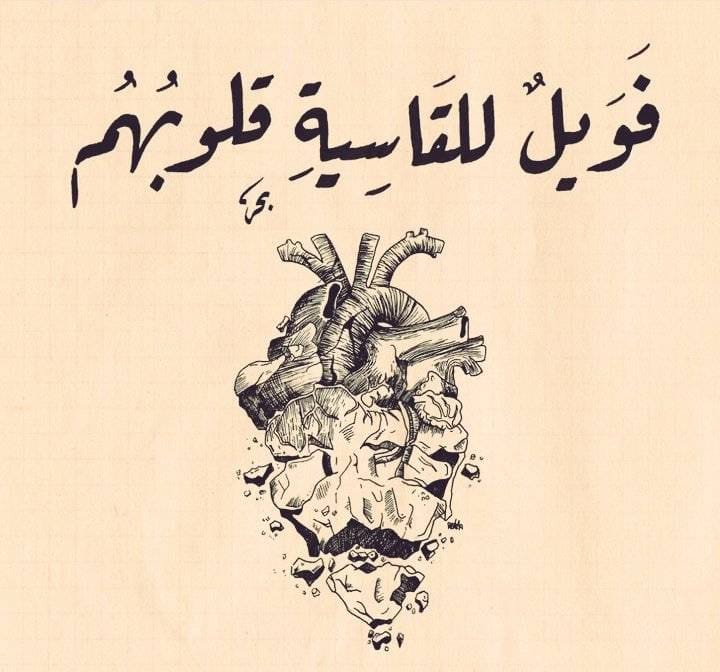 فَوَيلٌ للقَاسِيةِ قلوبُهُم